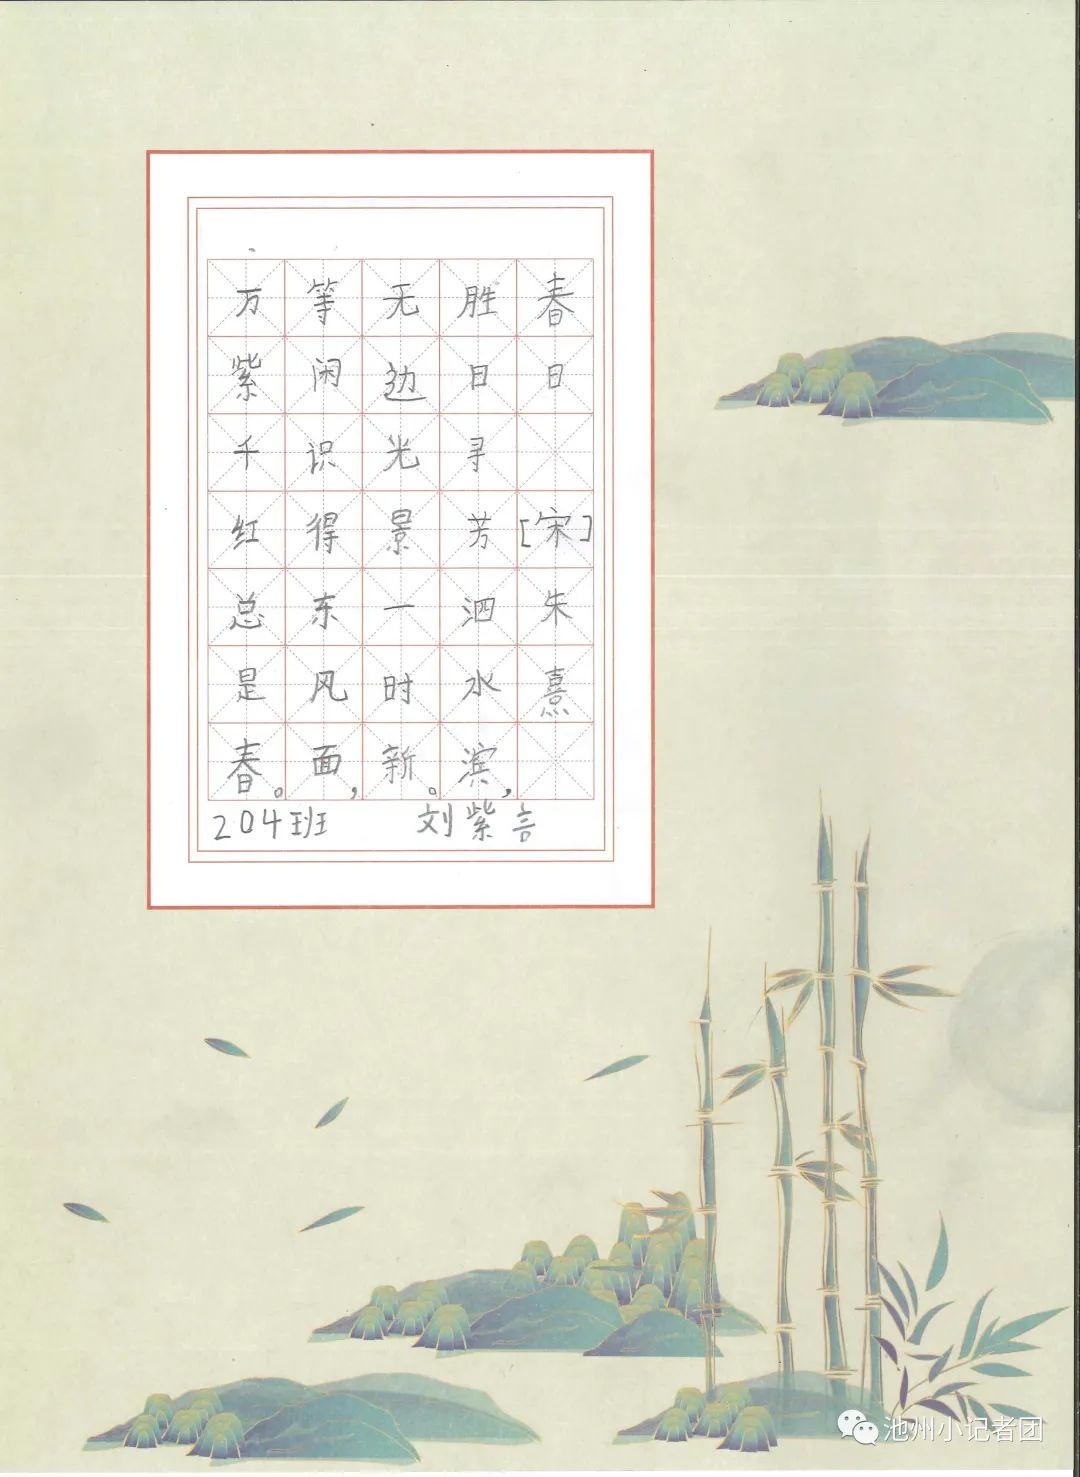 春日 [宋]朱熹
胜日寻芳泗水滨，
无边光景一时新。
等闲识得东风面，
万紫千红总是春。
204班 刘紫言
池州小记者团